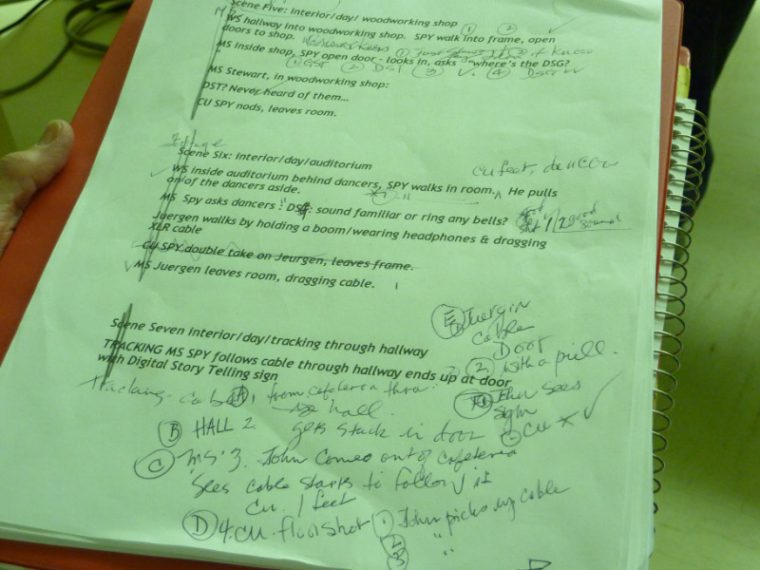 Scene Five: interior/day/ woodworking shop
WS hallway into woodworking shop. SPY walk into frame, open
doors to shop.
MS inside shop, SPY open door - looks in, asks "where's the DSG?
MS Stewart, in woodworking shop:
DST? Never heard of them...
CU SPY nods, leaves room.
Scene Six: interior/day/auditorium
cu feet, dancer
WS inside auditorium behind dancers, SPY walks in room. He pulls
on of the dancers aside.
MS Spy asks dancers : DS4: sound familiar or ring any bells?
good sound
Juergen wallks by holding a boom/wearing headphones & dragging
XLR cable
CU SPY double take on Jeurgen, leaves frame.
MS Juergen leaves room, dragging cable.
Scene Seven interior/day/tracking through hallway
TRACKING MS SPY follows cable through hallway ends up at door
with Digital Story Telling sign
E Juergin
cable
Door
2 with a pull.
then sees
sign
CU X
Tracking. A 1 from cafeterea thru
hall.
B HALL 2. gets stuck in door
C MS 3. John comes out of cafeterea
sees cable starts to follow it
cu. 1 feet
D 4. CU. floor shot 1 John picks up cable
2 "
3 "